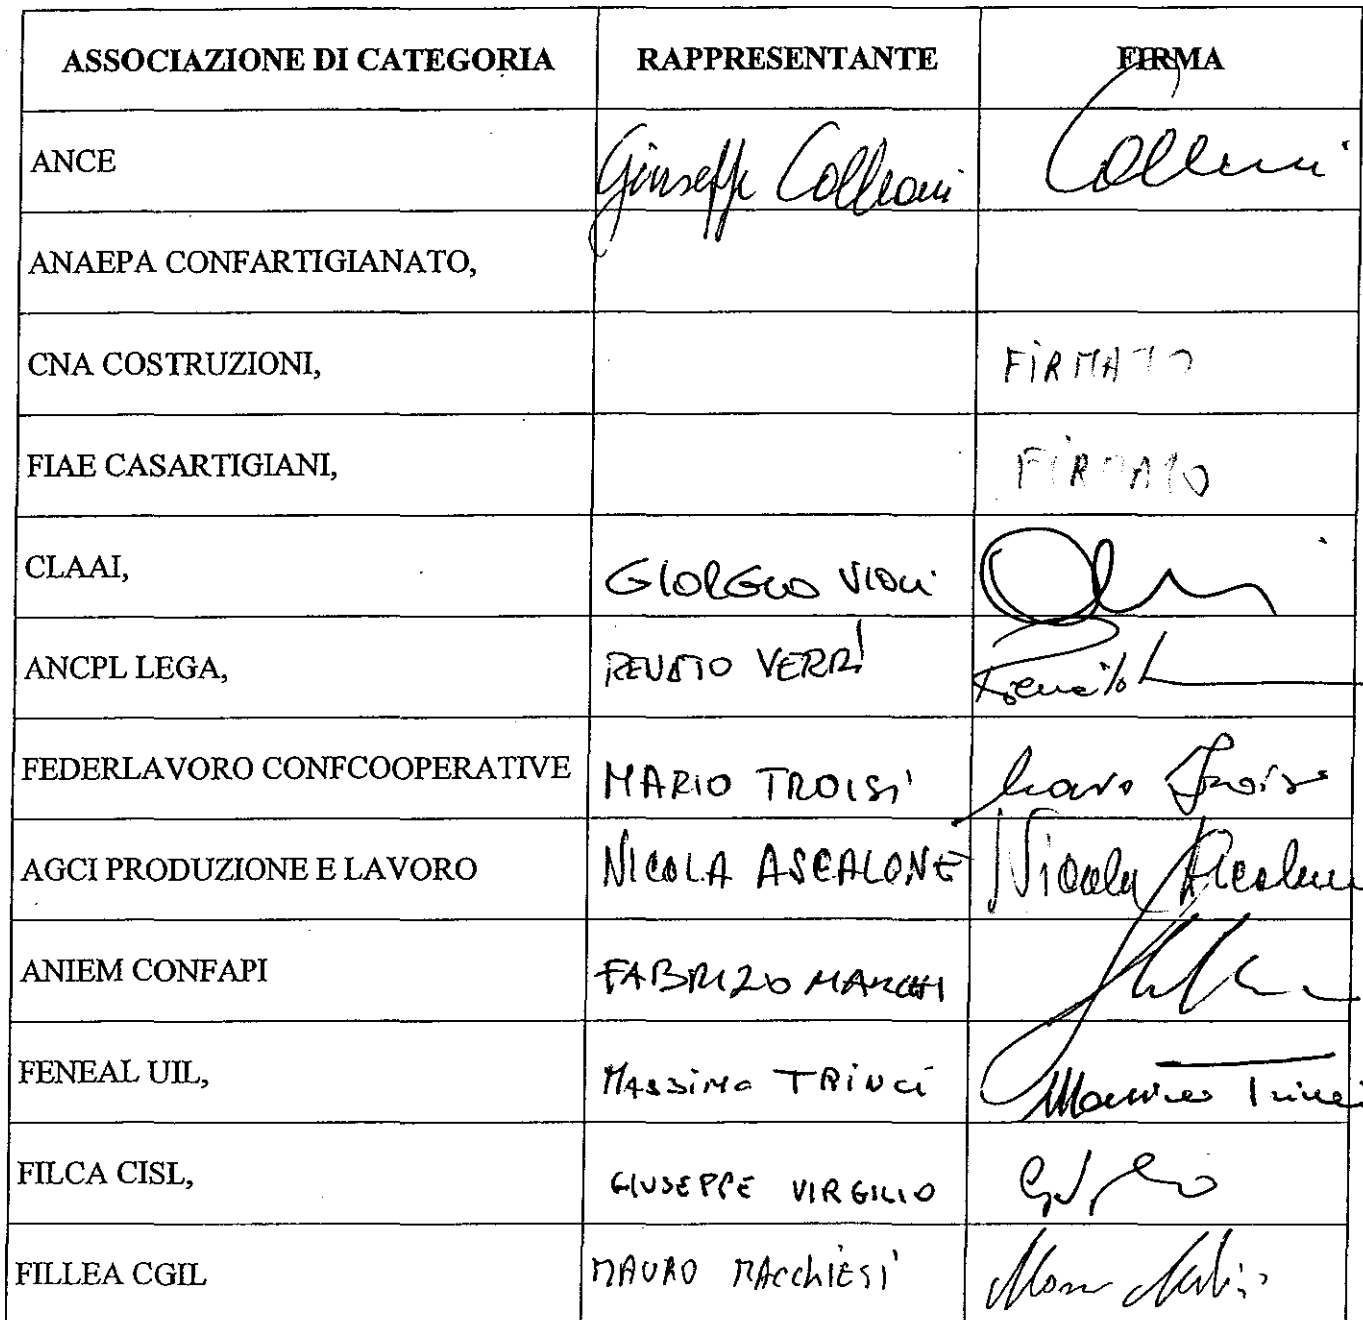 ASSOCIAZIONE DI CATEGORIA RAPPRESENTANTE FIRMA
ANCE Giuseppe Colleoni Colleoni
ANAEPA CONFARTIGIANATO,
CNA COSTRUZIONI, FIRMATO
FIAE CASARTIGIANI, FIRMATO
CLAAI,
ANCPL LEGA, RENATO VERRI
FEDERLAVORO CONFCOOPERATIVE MARIO TROISI Mario Troisi
AGCI PRODUZIONE E LAVORO NICOLA ASCALONE Nicola Ascalone
ANIEM CONFAPI FABRIZO MARCHI
FENEAL UIL, MASSIMO TRINCI Massimo Trinci
FILCA CISL, GIUSEPPE VIRGILIO
FILLEA CGIL MAURO MACCHIESI